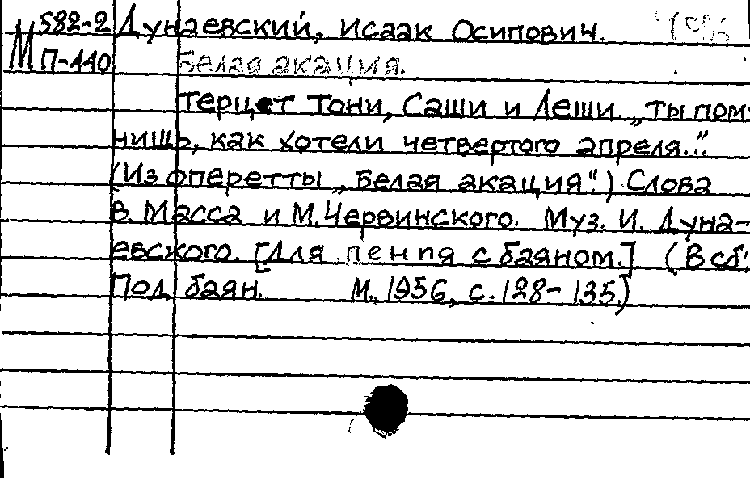 М 582-2 Дунаевский, Исаак Осипович.
П-110 Белая акация.
Терцет Тони, Саши и Леши „Ты пом-
нишь, как хотели четвертого апреля..."
(Из оперетты „Белая акация".) Слова
В. Масса и М. Червинского. Муз. И. Дуна-
евского. [Для пения с баяном.] (В сб:
Под баян. М., 1956, с. 128-135.)